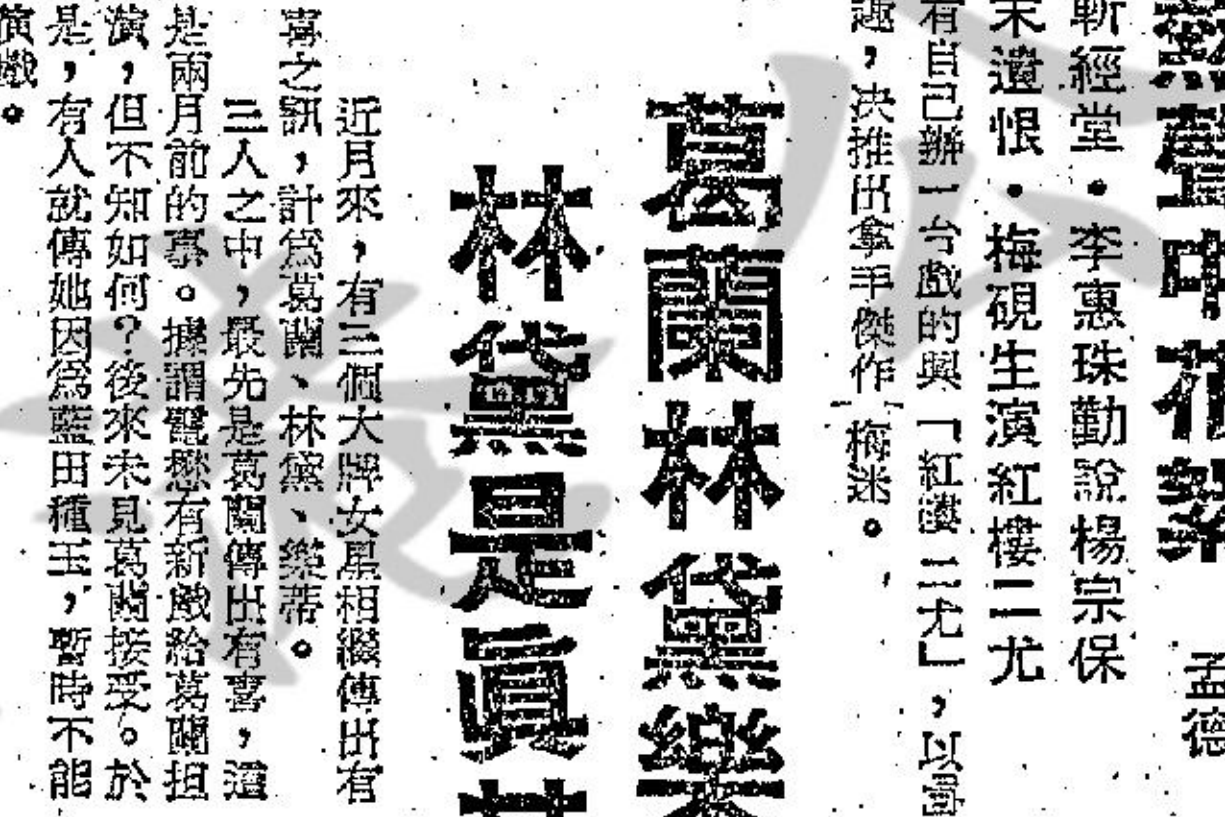 中
孟德
斬經堂・李惠珠勸說楊宗保
末遺恨・梅硯生演紅樓二尤
有自己辦一台戲的與「紅樓二尤」，以
趣，決推出拿手傑作「梅迷。
葛蘭林黛樂
林黛是眞
近月來，有三個大牌女星相繼傳出有
喜之訊，計爲葛蘭、林黛、樂蒂。
三人之中，最先是葛蘭傳出有喜，這
是兩月前的事。據謂電懋有新戲給葛蘭担
演，但不知如何？後來未見葛蘭接受。於
是，有人就傳她因爲藍田種玉，暫時不能
演戲。